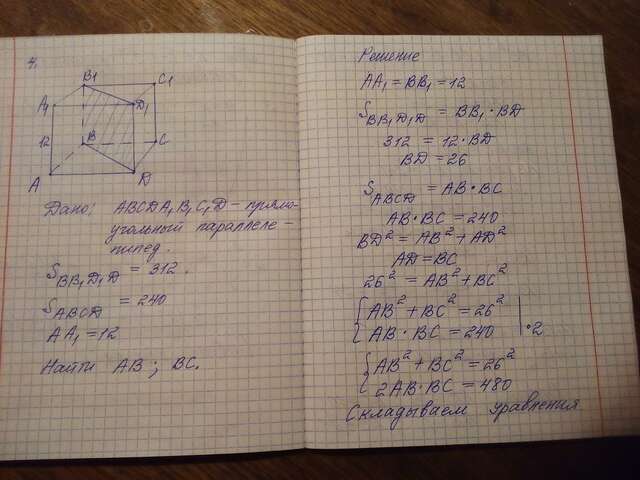 4.
B1 C1
A1 D1
12 B C
A D
Дано: ABCDA₁B₁C₁D – прямо-
угольный параллеле-
пипед.
S_BB₁D₁D = 312.
S_ABCD = 240
AA₁ = 12
Найти AB; BC.
Решение
AA₁ = BB₁ = 12
S_BB₁D₁D = BB₁ · BD
312 = 12 · BD
BD = 26
S_ABCD = AB · BC
AB · BC = 240
BD² = AB² + AD²
AD = BC
26² = AB² + BC²
{ AB² + BC² = 26²
{ AB · BC = 240 | · 2
{ AB² + BC² = 26²
{ 2AB · BC = 480
Складываем уравнения